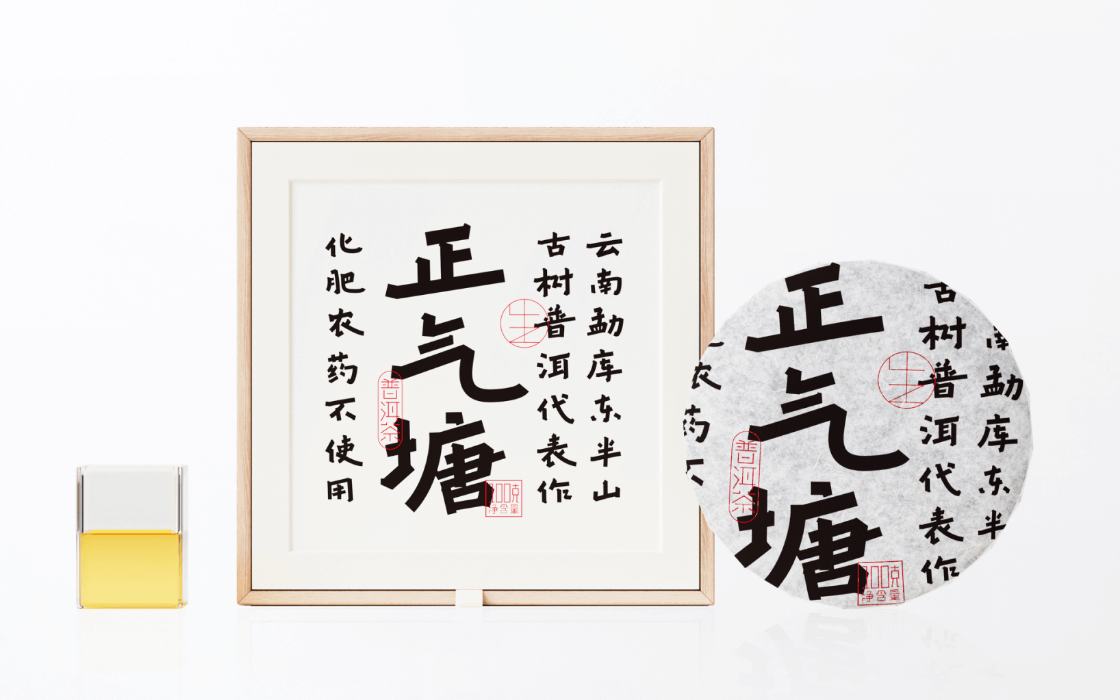 云南勐库东半山
古树普洱代表作
生
正气塘
普洱茶
100克
净含量
化肥农药不使用
南勐库东半
古树普洱代表作
生
正气塘
普洱茶
100克
净含量
农药不